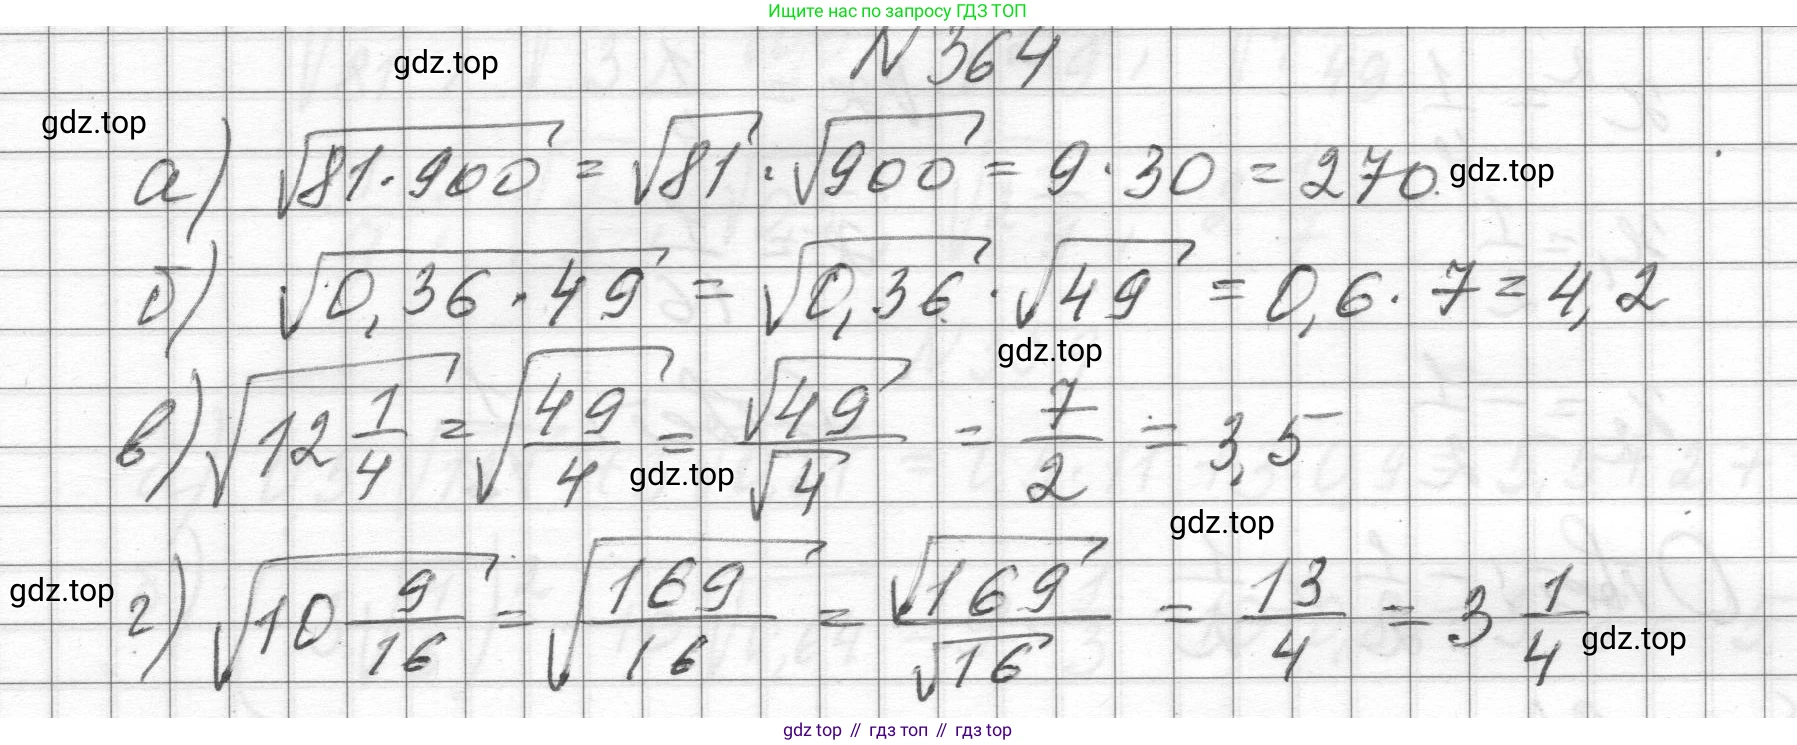 Ищите нас по запросу ГДЗ ТОП
N 364
gdz.top
gdz.top
а) √(81·900) = √81 · √900 = 9·30 = 270
gdz.top
б) √(0,36·49) = √0,36 · √49 = 0,6·7 = 4,2
gdz.top
в) √(12 1/4) = √(49/4) = √49/√4 = 7/2 = 3,5
gdz.top
gdz.top
gdz.top
г) √(10 9/16) = √(169/16) = √169/√16 = 13/4 = 3 1/4
gdz.top
gdz top // гдз топ // gdz top